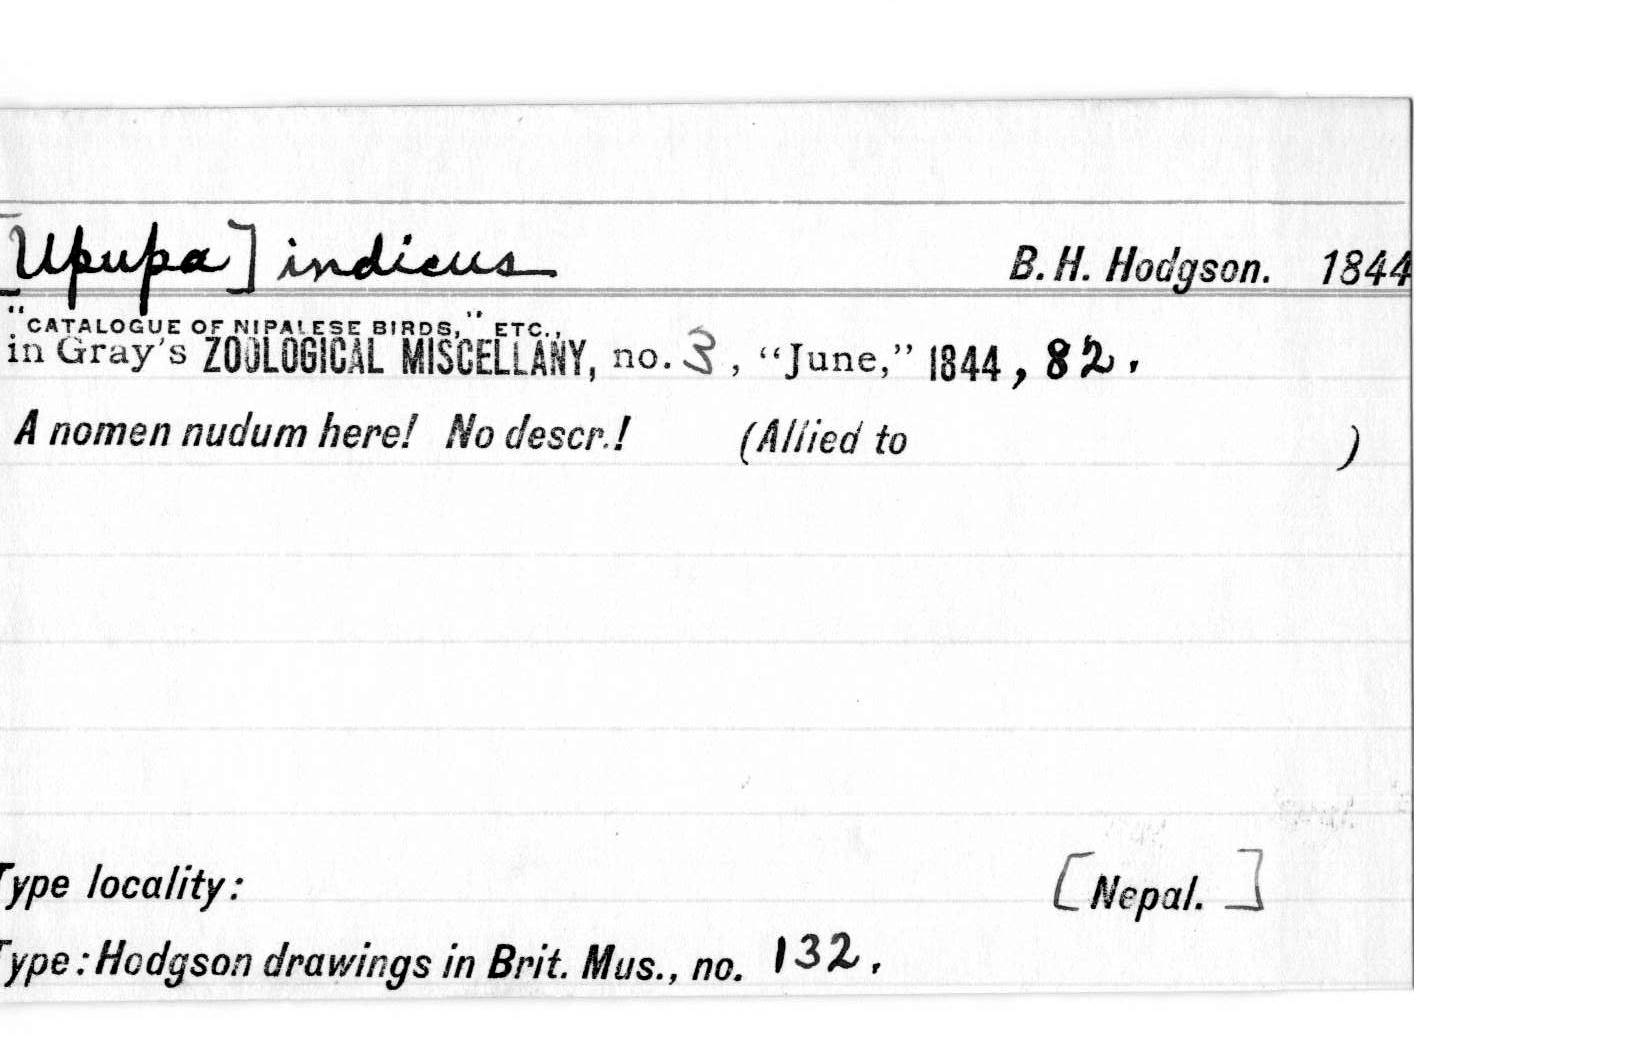 [Upupa] indicus B. H. Hodgson. 1844
"CATALOGUE OF NIPALESE BIRDS," ETC.,
in Gray's ZOOLOGICAL MISCELLANY, no. 3, "June," 1844, 82.
A nomen nudum here! No descr.! (Allied to )
Type locality: [Nepal.]
Type: Hodgson drawings in Brit. Mus., no. 132.